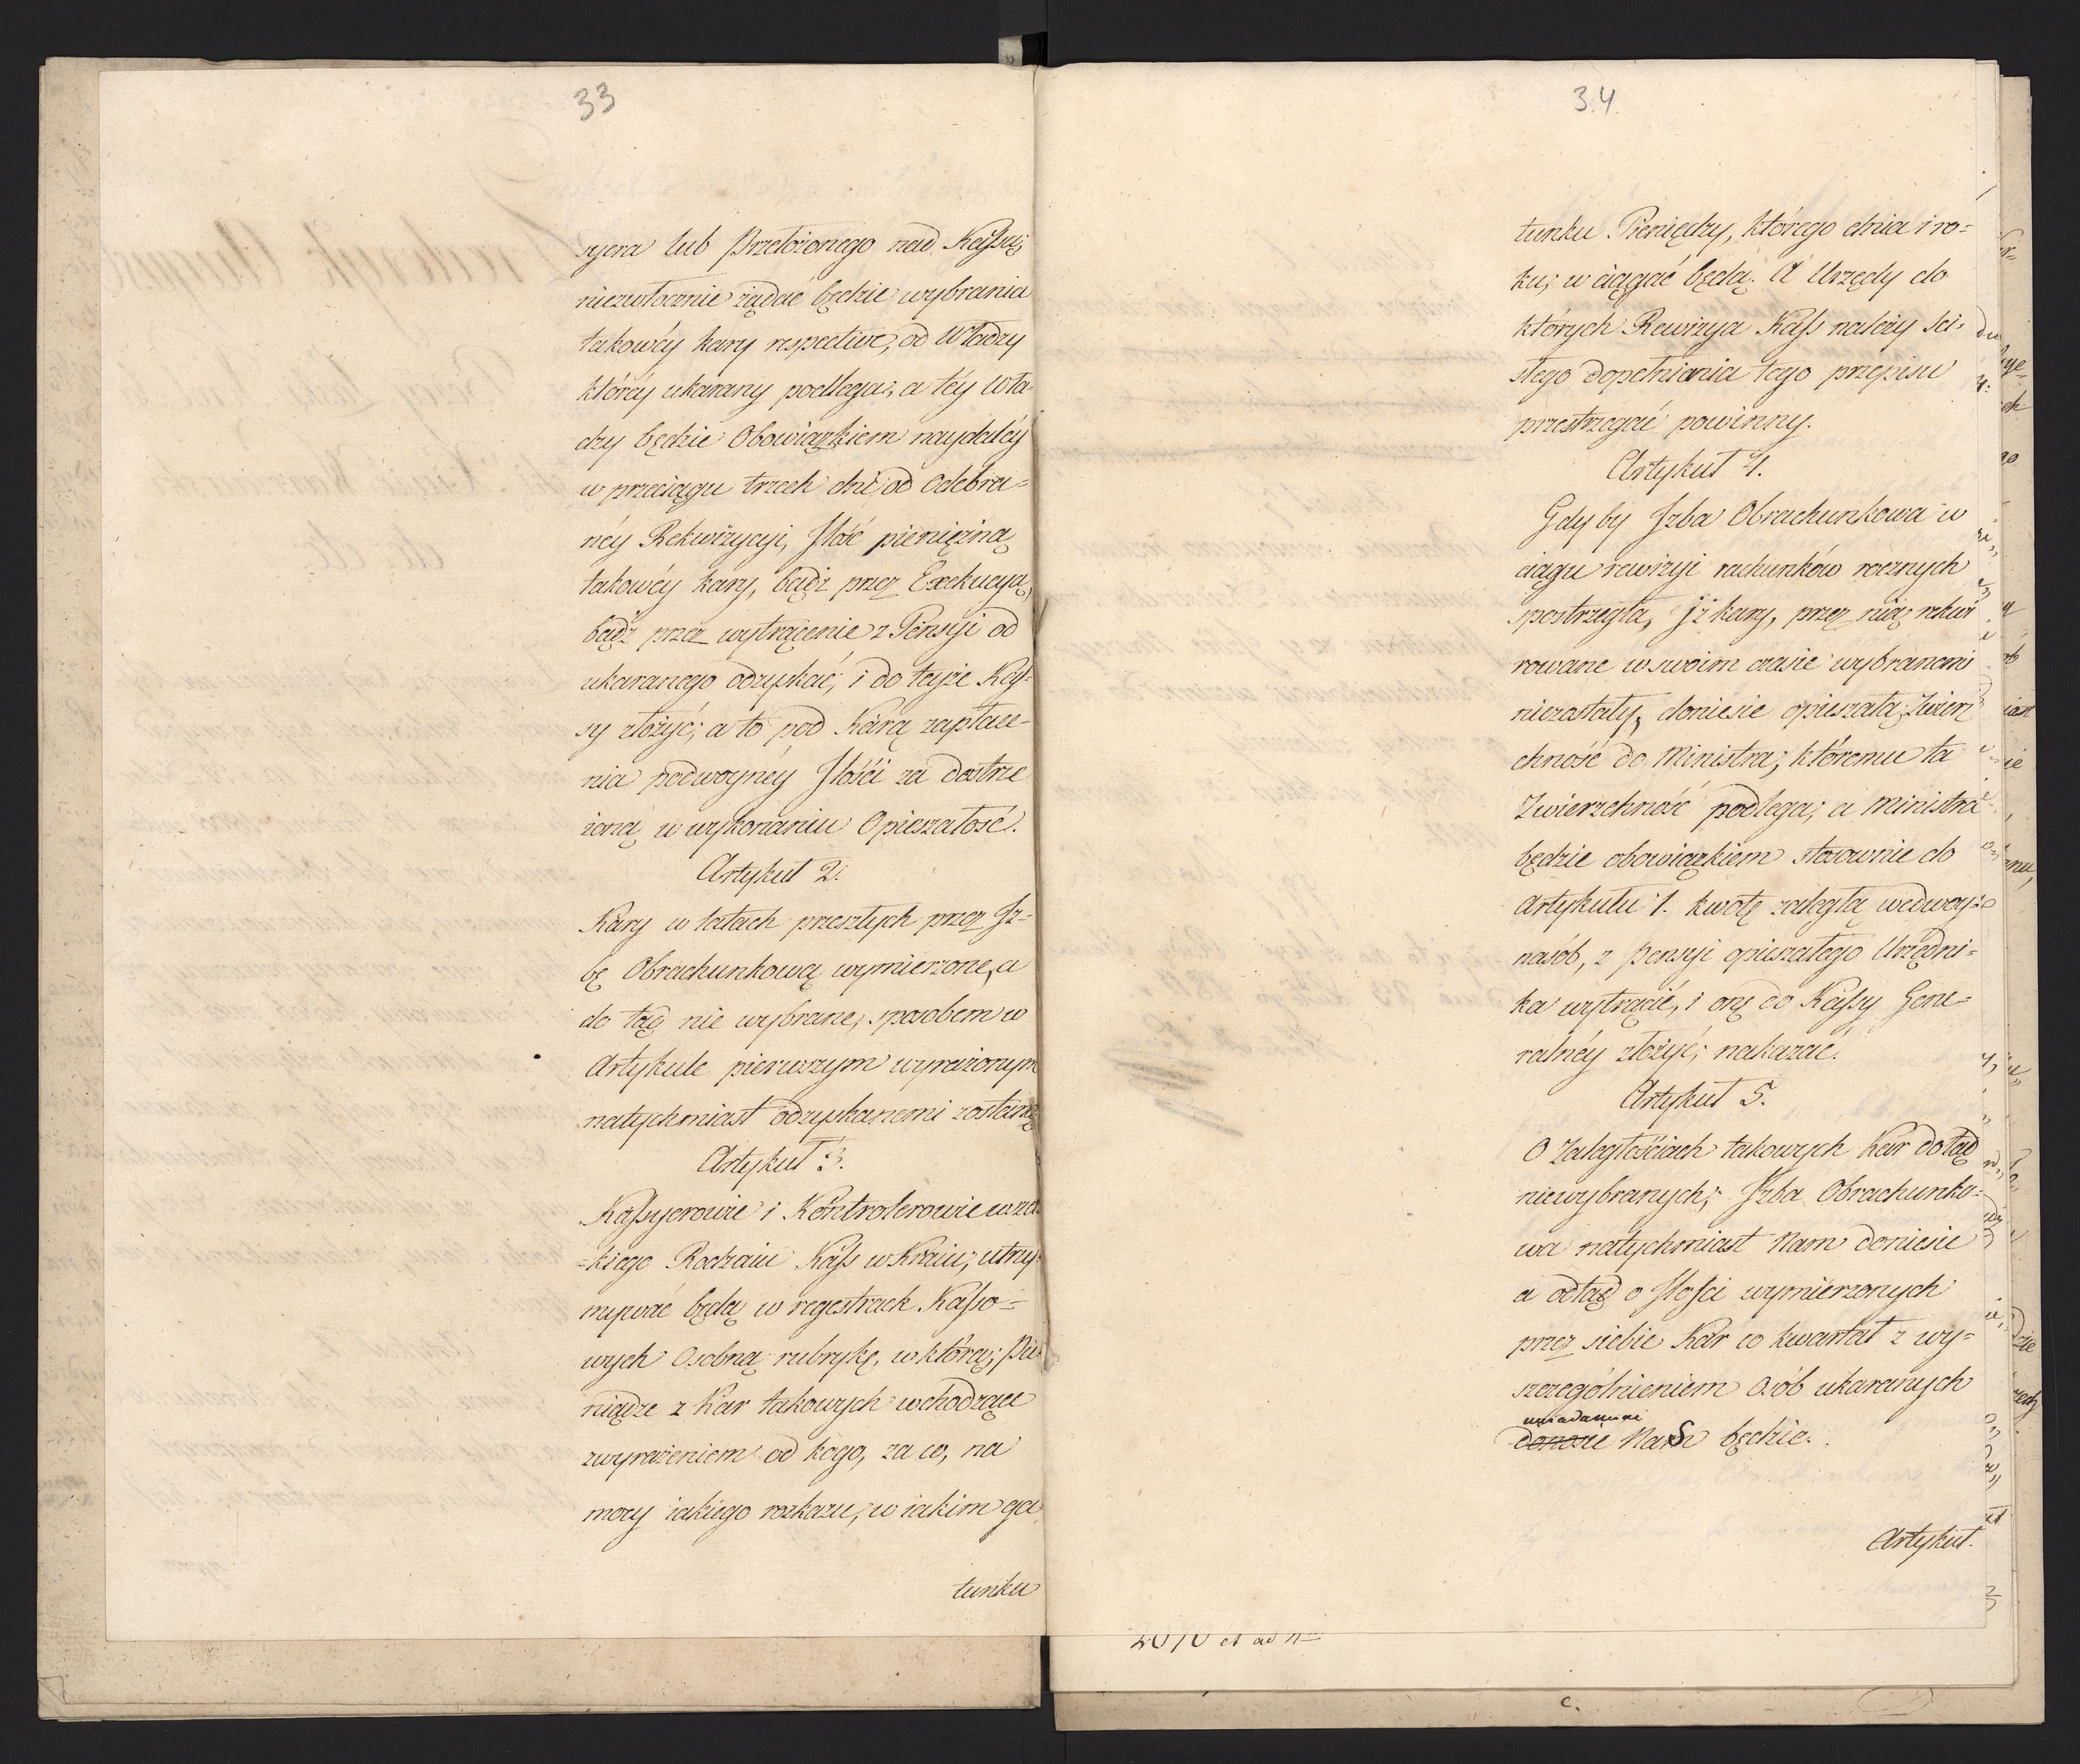 33
syera lub Przełożonego nad Kassą;
niezwłocznie żądać będzie wybrania
takowéy kary respective, od Władzy
któréy ukarany podlega; a téy Wła-
dzy będzie Obowiązkiem naydaléy
w przeciągu trzech dni od Odebra-
néy Rekwizycyi, Ilość pieniężną
takowéy kary, bądź przez Exekucyą,
bądź przez wytrącenie z Pensyi od
ukaranego odzyskać, i do teyże Kas-
sy złożyć; a to pod Karą zapłace-
nia podwoynéy Ilości za dostrze
żoną w wykonaniu Opieszałość.
Artykuł 2.
Kary w latach przeszłych przez Iz-
bę Obrachunkową wymierzone, a
do tąd nie wybrane, sposobem w
Artykule pierwszym wyrażonym
natychmiast odzyskanemi zostaną
Artykuł 3.
Kassyerowie i Kontrolerowie wsze
=kiego Rodzaiu Kass w Kraiu, utrzy-
mywać będą w regestrach Kasso-
wych Osobną rubrykę, w którą; Pie-
niądze z Kar takowych wchodzące
zwyrażeniem od kogo, za co, na
mocy iakiego rozkazu, w iakim ga
tunku
34
tunku Pieniędzy, którego dnia i ro=
ku, w ciągać będą. A Urzędy do
których Rewizya Kass należy ści-
słego dopełniania tego przepisu
przestrzegać powinny.
Artykuł 4.
Gdy by Izba Obrachunkowa w
ciągu rewizyi rachunków rocznych
spostrzegła, iż kary, przez nią rekwi
rowane w swoim czasie wybranemi
niezostały, doniesie opieszałą Zwierz
chność do Ministra, któremu ta
Zwierzchność podlega; a Ministra
będzie obowiązkiem stosownie do
Artykułu 1. kwotę zaległą wedwoy-
nasób, z Pensyi opieszałego Urzędni=
ka wytrącić, i onę do Kassy Gene-
ralnéy złożyć, nakazać.
Artykuł 5.
O Zaległościach takowych Kar dotąd
niewybranych; Izba Obrachunko-
wa natychmiast Nam doniesie
a odtąd o Ilości wymierzonych
przez siebie Kar co kwartał z wy=
szczególnieniem Osób ukaranych
uwiadamiać
donosić NaS będzie.
Artykuł.